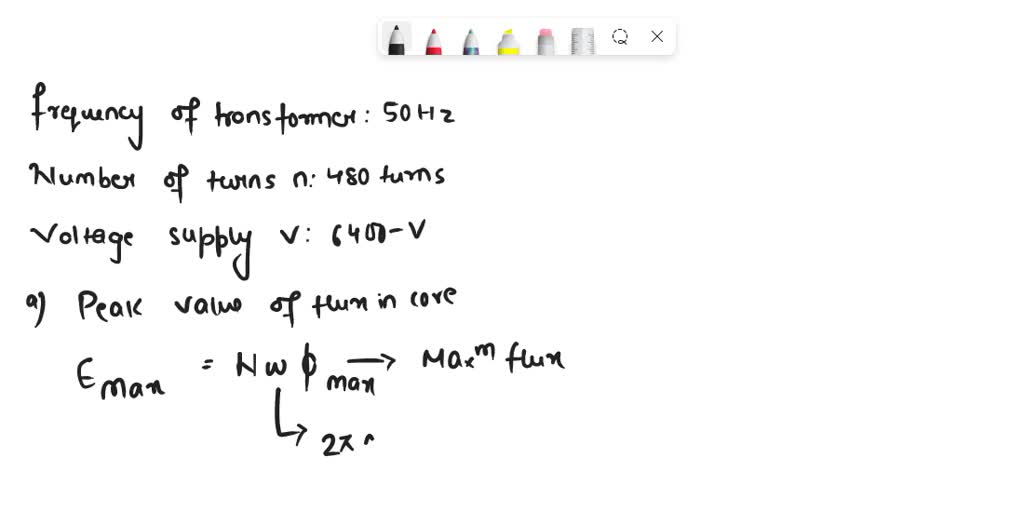 frequency of transformer: 50Hz
Number of turns n: 480 turns
Voltage supply V: 6400-V
a) Peak value of flux in core
Emax = Nωϕmax → Maxᵐ flux
↳ 2π